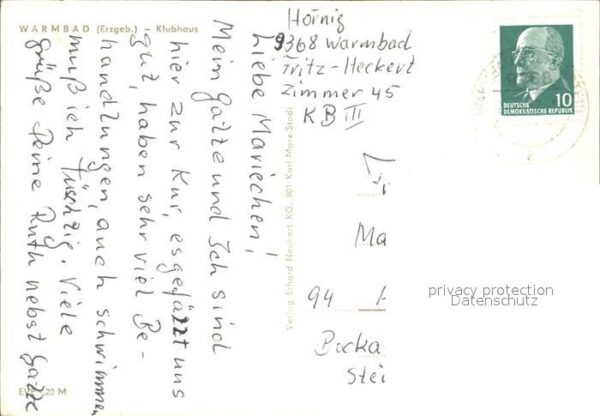 WARMBAD (Erzgeb.) — Klubhaus
Liebe Mariechen!
Mein Gatte und Ich sind
hier zur Kur, es gefällt uns
gut, haben sehr viel Be-
handlungen, auch schwimmen
muß ich tüchtig. Viele
grüße Deine Ruth nebst Gatte
20 M
Verlag Erhard Neubert KG, 901 Karl-Marx-Stadt
Hörnig
9368 Warmbad
Fritz-Heckert
Zimmer 45
KB III
DEUTSCHE
DEMOKRATISCHE REPUBLIK
10
Ma
94
Bocka
Stei
privacy protection
Datenschutz